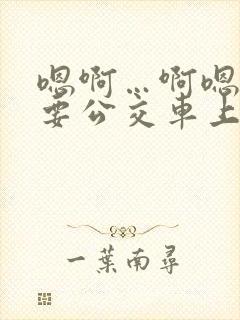 嗯啊…啊嗯
要公交车上
一葉南尋